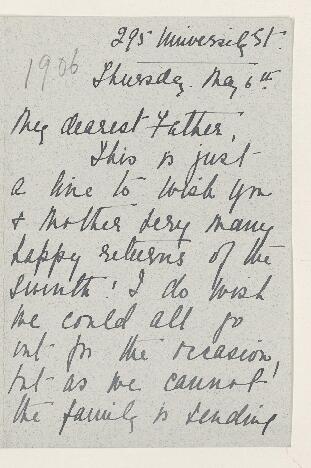 295 University St.
1906
Thursday. May 6th
My dearest Father,
This is just
a line to wish you
& Mother very many
happy returns of the
! I do wish
we could all go
out for the occasion!
but as we cannot
the family is sending